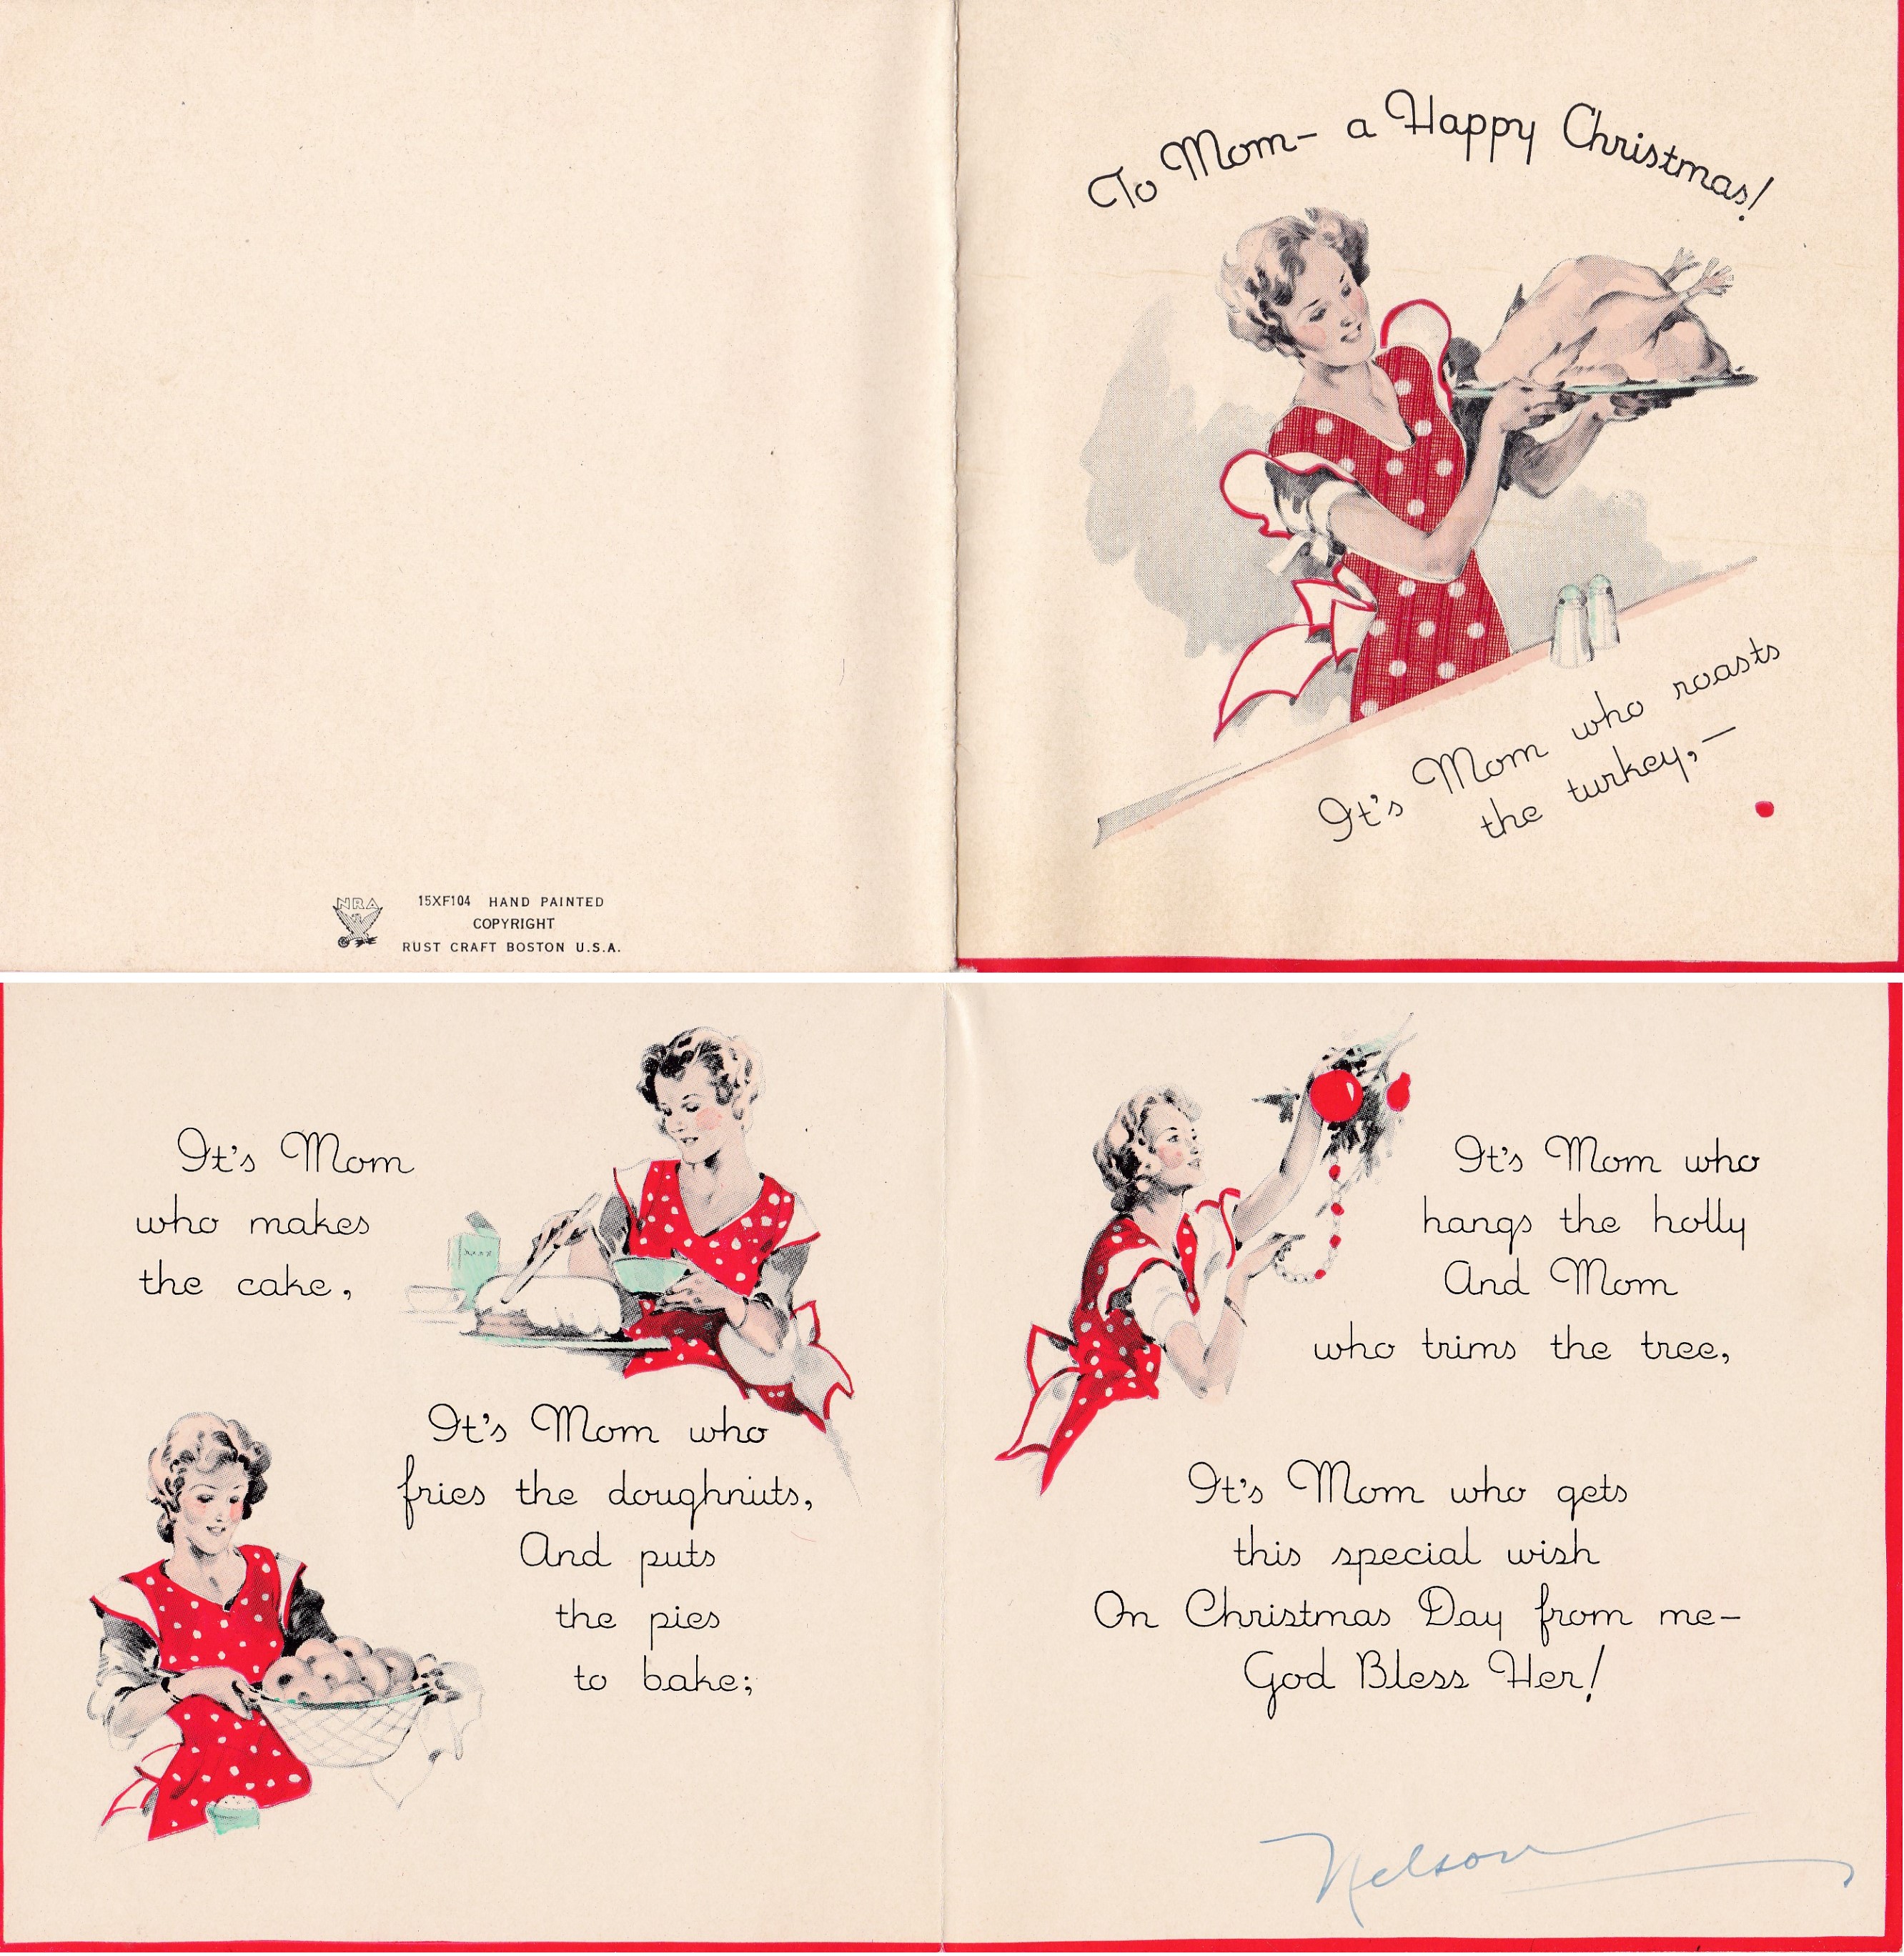 To Mom— a Happy Christmas!
It's Mom who roasts
the turkey,—
NRA
15XF104 HAND PAINTED
COPYRIGHT
RUST CRAFT BOSTON U.S.A.
It's Mom
who makes
the cake,
XXXX
It's Mom who
fries the doughnuts,
And puts
the pies
to bake;
It's Mom who
hangs the holly
And Mom
who trims the tree,
It's Mom who gets
this special wish
On Christmas Day from me—
God Bless Her!
Nelson